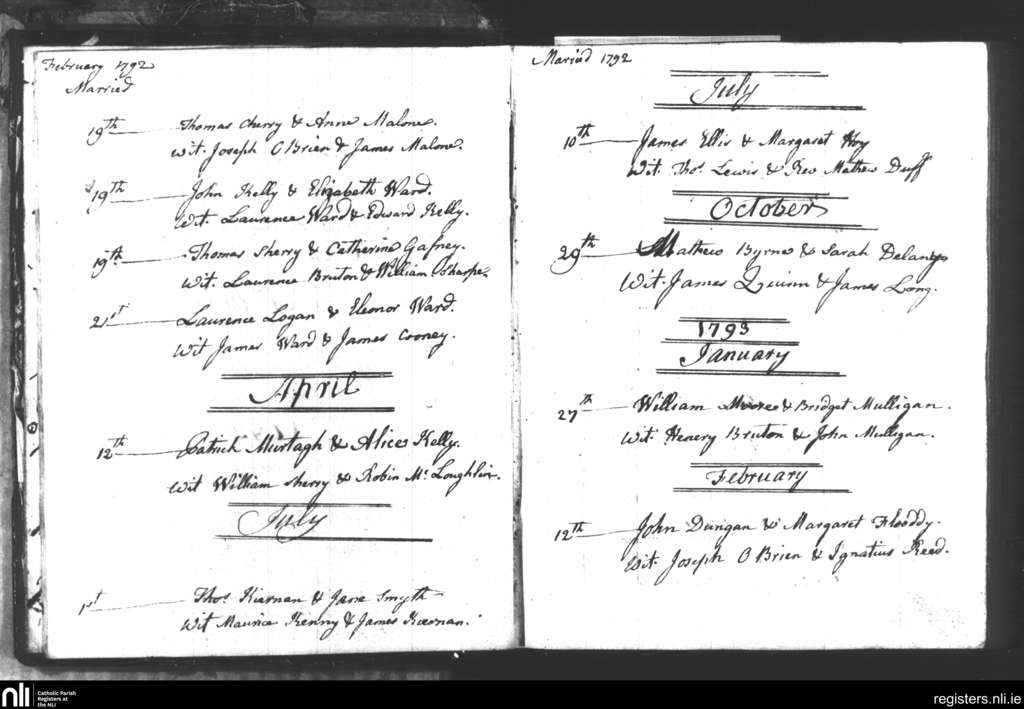 February 1792
Married
19th Thomas Cherry & Anne Malone.
Wit. Joseph O Brien & James Malone.
19th John Kelly & Elizabeth Ward.
Wit. Laurence Ward & Edward Kelly.
19th Thomas Sherry & Catherine Gafney.
Wit. Laurence Bruton & William Sharpe
21st Laurence Logan & Eleonor Ward.
Wit James Ward & James Cooney.
April
12th Patrick Murtagh & Alice Kelly.
Wit William Sherry & Robin Mc Loughlin.
July
1st Thos Kiernan & Jane Smyth
Wit Maurice Kenny & James Kiernan.
Maried 1792
July
10th James Ellis & Margaret
Wit. Thos. Lewis & Rev Mathew Duff
October
29th Mathew Byrne & Sarah Delany
Wit. James Quinn & James Long.
1793
January
27th William Moore & Bridget Mulligan.
Wit. Henery Bruton & John Mulligan.
February
12th John Dungan & Margaret Flooddy.
Wit. Joseph O Brien & Ignatius Reed.
nli
Catholic Parish
Registers at
the NLI
registers.nli.ie